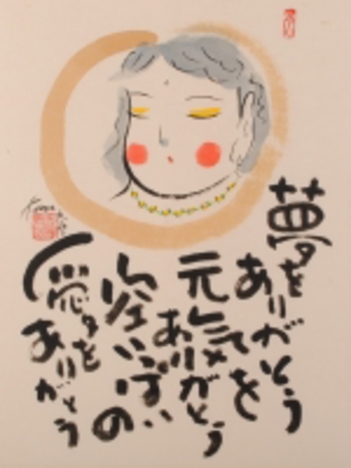 夢をありがとう
元気をありがとう
空いっぱいの
愛をありがとう